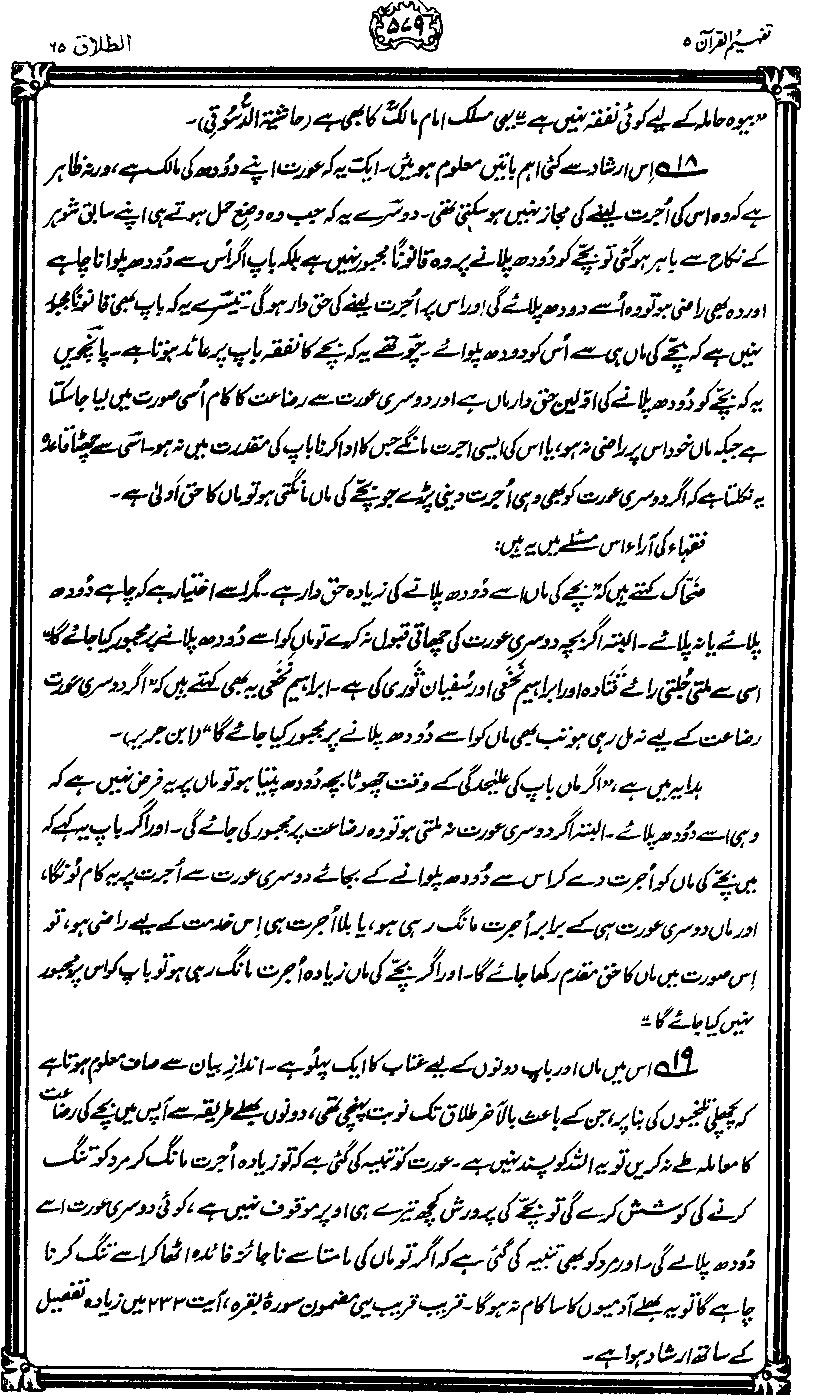 تفہیم القرآن ۵
۵۷۹
الطلاق ۶۵
”بیوہ حاملہ کے لیے کوئی نفقہ نہیں ہے“ یہی مسلک امام مالکؒ کا بھی ہے (حاشیۃ الدّسُوقی)۔
۱۸ اِس ارشاد سے کئی اہم باتیں معلوم ہوئیں۔ ایک یہ کہ عورت اپنے دُودھ کی مالک ہے، ورنہ ظاہر
ہے کہ وہ اس کی اُجرت لینے کی مجاز نہیں ہو سکتی تھی۔ دوسرے یہ کہ جب وہ وضعِ حمل ہوتے ہی اپنے سابق شوہر
کے نکاح سے باہر ہو گئی تو بچّے کو دُودھ پلانے پر وہ قانونًا مجبور نہیں ہے بلکہ باپ اگر اُس سے دُودھ پلوانا چاہے
اور وہ بھی راضی ہو تو وہ اُسے دودھ پلائے گی اور اس پر اُجرت لینے کی حق دار ہو گی۔ تیسرے یہ کہ باپ بھی قانونًا مجبور
نہیں ہے کہ بچّے کی ماں ہی سے اُس کو دودھ پلوائے۔ چوتھے یہ کہ بچّے کا نفقہ باپ پر عائد ہوتا ہے۔ پانچویں
یہ کہ بچّے کو دُودھ پلانے کی اوّلین حق دار ماں ہے اور دوسری عورت سے رضاعت کا کام اُسی صورت میں لیا جا سکتا
ہے جبکہ ماں خود اس پر راضی نہ ہو، یا اس کی ایسی اجرت مانگے جس کا ادا کرنا باپ کی مقدرت میں نہ ہو۔ اسی سے چھٹا قاعدہ
یہ نکلتا ہے کہ اگر دوسری عورت کو بھی وہی اُجرت دینی پڑے جو بچّے کی ماں مانگتی ہو تو ماں کا حق اَولیٰ ہے۔
فقہاء کی آراء اس مسئلے میں یہ ہیں:
ضحّاک کہتے ہیں کہ ”بچّے کی ماں اسے دُودھ پلانے کی زیادہ حق دار ہے۔ مگر اسے اختیار ہے کہ چاہے دُودھ
پلائے یا نہ پلائے۔ البتہ اگر بچہ دوسری عورت کی چھاتی قبول نہ کرے تو ماں کو اسے دُودھ پلانے پر مجبور کیا جائے گا“
اسی سے ملتی جُلتی رائے قَتادہ اور ابراہیم نَخَعی اور سُفیان ثَوری کی ہے۔ ابراہیم نَخَعی یہ بھی کہتے ہیں کہ ”اگر دوسری عورت
رضاعت کے لیے نہ مل رہی ہو تب بھی ماں کو اسے دُودھ پلانے پر مجبور کیا جائے گا“ (ابن جریر)۔
ہدایہ میں ہے، ”اگر ماں باپ کی علیٰحدگی کے وقت چھوٹا بچہ دُودھ پیتا ہو تو ماں پر یہ فرض نہیں ہے کہ
وہی اسے دُودھ پلائے۔ البتہ اگر دوسری عورت نہ ملتی ہو تو وہ رضاعت پر مجبور کی جائے گی۔ اور اگر باپ یہ کہے کہ
میں بچّے کی ماں کو اُجرت دے کر اس سے دُودھ پلوانے کے بجائے دوسری عورت سے اُجرت پر یہ کام لُونگا،
اور ماں دوسری عورت ہی کے برابر اُجرت مانگ رہی ہو، یا بلا اُجرت ہی اِس خدمت کے لیے راضی ہو، تو
اِس صورت میں ماں کا حق مقدم رکھا جائے گا۔ اور اگر بچّے کی ماں زیادہ اُجرت مانگ رہی ہو تو باپ کو اس پر مجبور
نہیں کیا جائے گا“
۱۹ اس میں ماں اور باپ دونوں کے لیے عتاب کا ایک پہلُو ہے۔ اندازِ بیان سے صاف معلوم ہوتا ہے
کہ پچھلی تلخیوں کی بنا پر، جن کے باعث بالآخر طلاق تک نوبت پہنچی تھی، دونوں بھلے طریقہ سے آپس میں بچے کی رضاعت
کا معاملہ طے نہ کریں تو یہ اللہ کو پسند نہیں ہے۔ عورت کو تنبیہ کی گئی ہے کہ تو زیادہ اُجرت مانگ کر مرد کو تنگ
کرنے کی کوشش کرے گی تو بچّے کی پرورش کچھ تیرے ہی اوپر موقوف نہیں ہے، کوئی دوسری عورت اسے
دُودھ پلالے گی۔ اور مرد کو بھی تنبیہ کی گئی ہے کہ اگر تو ماں کی مامتا سے ناجائز فائدہ اٹھا کر اسے تنگ کرنا
چاہے گا تو یہ بھلے آدمیوں کا سا کام نہ ہوگا۔ قریب قریب یہی مضمون سورۂ بقرہ، آیت ۲۳۳ میں زیادہ تفصیل
کے ساتھ ارشاد ہوا ہے۔